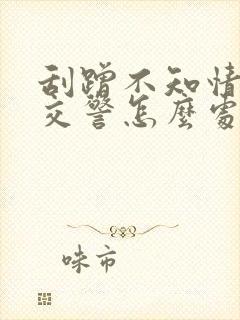 刮蹭不知情
交警怎麼處
咪市